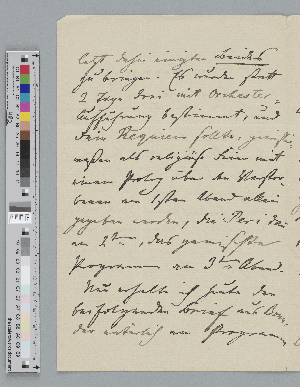 letzt dahin einigten beides
zu bringen. Es wurden statt
2 Tage drei mit Orchester-
Aufführung bestimmt, und
dem Requiem sollte, gewisser-
maßen als religiöse Feier mit
einem Prolog über den Verstor-
benen am 1sten Abend allein
gegeben werden, die Peri dann
am 2ten, das gemischte
Programm am 3ten Abend.
Nun erhalte ich heute den
beifolgenden Brief aus Bonn,
der natürlich am Programm